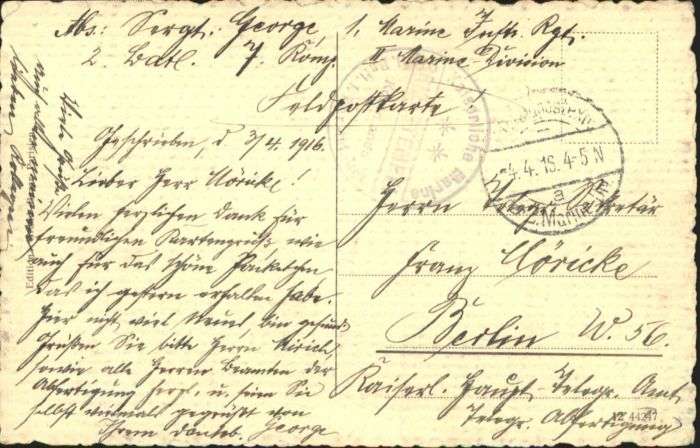 Abs: Sergt. George, 1. Marine Inft. Rgt.
2. Batl. 7. Komp. II Marine Division
Feldpostkarte!
Geschrieben, d 3/4. 1916.
Lieber Herr Möricke!
Vielen herzlichen Dank für
freundlichen Kartengruß, wie
auch für das schöne Packetchen
das ich gestern erhalten habe.
Hier nicht viel neues, bin gesund
Grüßen Sie bitte Herrn
sowie alle Herren Beamten der
Abfertigung herzl. u. seien Sie
selbst vielmals gegrüßt von
Ihrem dankb. George
Herrn Telegr. Sekretär
Franz Möricke
Berlin W. 56.
Kaiserl. Haupt Telegr. Amt
Telegr. Abfertigung
Kaiserliche Marine
4.4.16. 4-5 N
a
AZ 44247